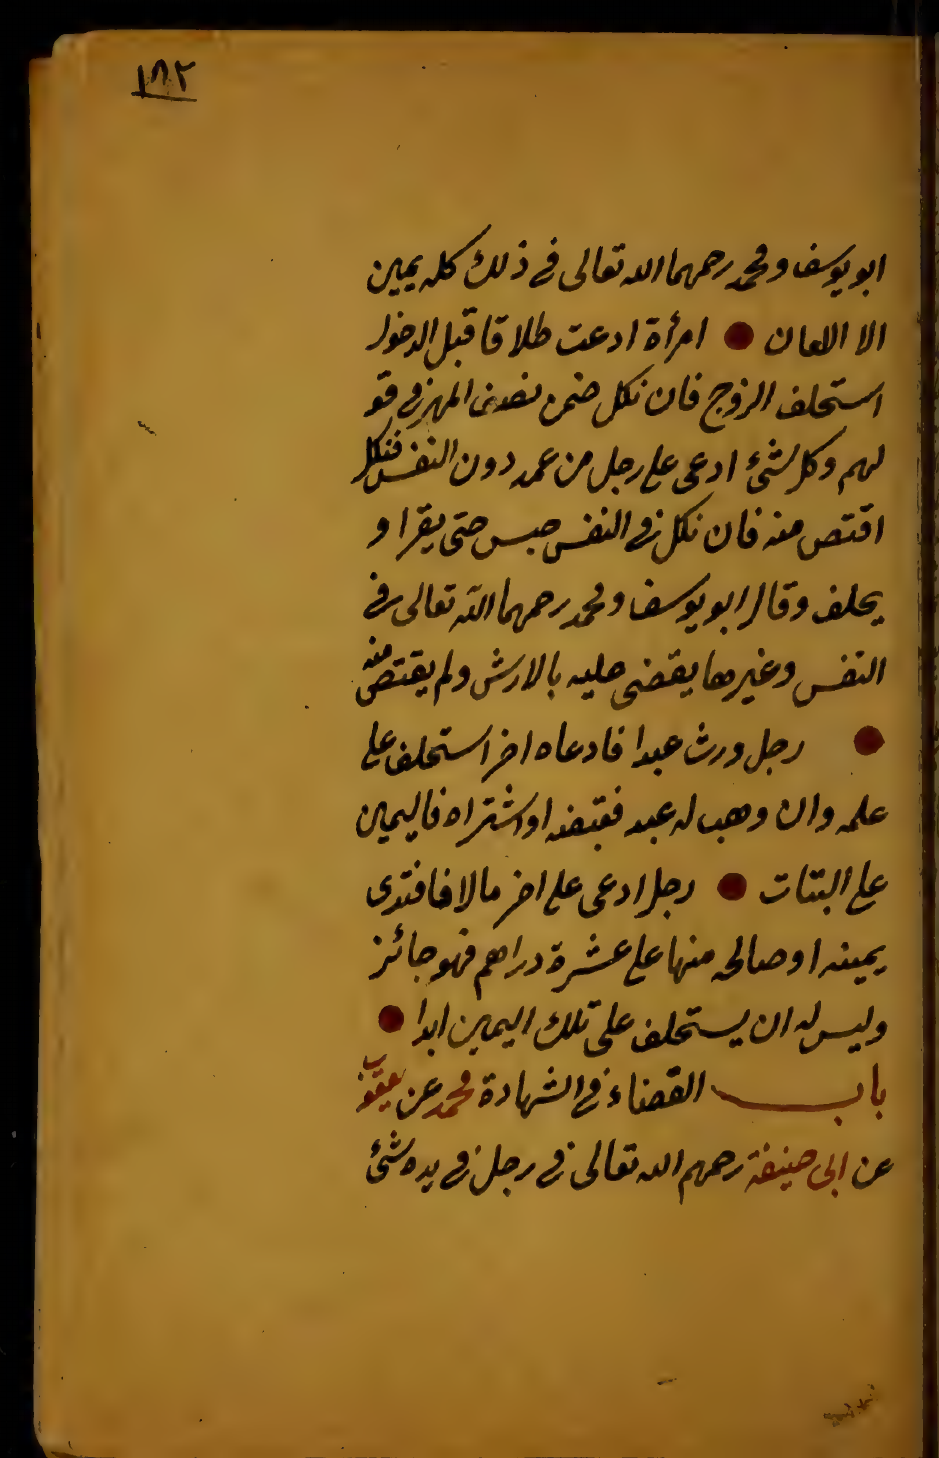 ١٨٢
ابو يوسف ومحمد رحمهما الله تعالى في ذلك كله يمين
الا اللعان ● امرأة ادعت طلاقا قبل الدخول
استحلف الزوج فان نكل ضمن نصف المهر في قو
لهم وكل شئ ادعى على رجل من عمد دون النفس فنكل
اقتص منه فان نكل في النفس حبس حتى يقر او
يحلف وقال ابو يوسف ومحمد رحمهما الله تعالى في
النفس وغيرها يقضى عليه بالارش ولم يقتص منه
● رجل ورث عبدا فادعاه اخر استحلف على
علمه وان وهب له عبد فقبضه او اشتراه فاليمين
على البتات ● رجل ادعى على اخر مالا فافتدى
يمينه او صالحه منها على عشرة دراهم فهو جائز
وليس له ان يستحلف على تلك اليمين ابدا ●
باب القضاء في الشهادة محمد عن يعقوب
عن ابى حنيفة رحمهم الله تعالى في رجل في يده شئ